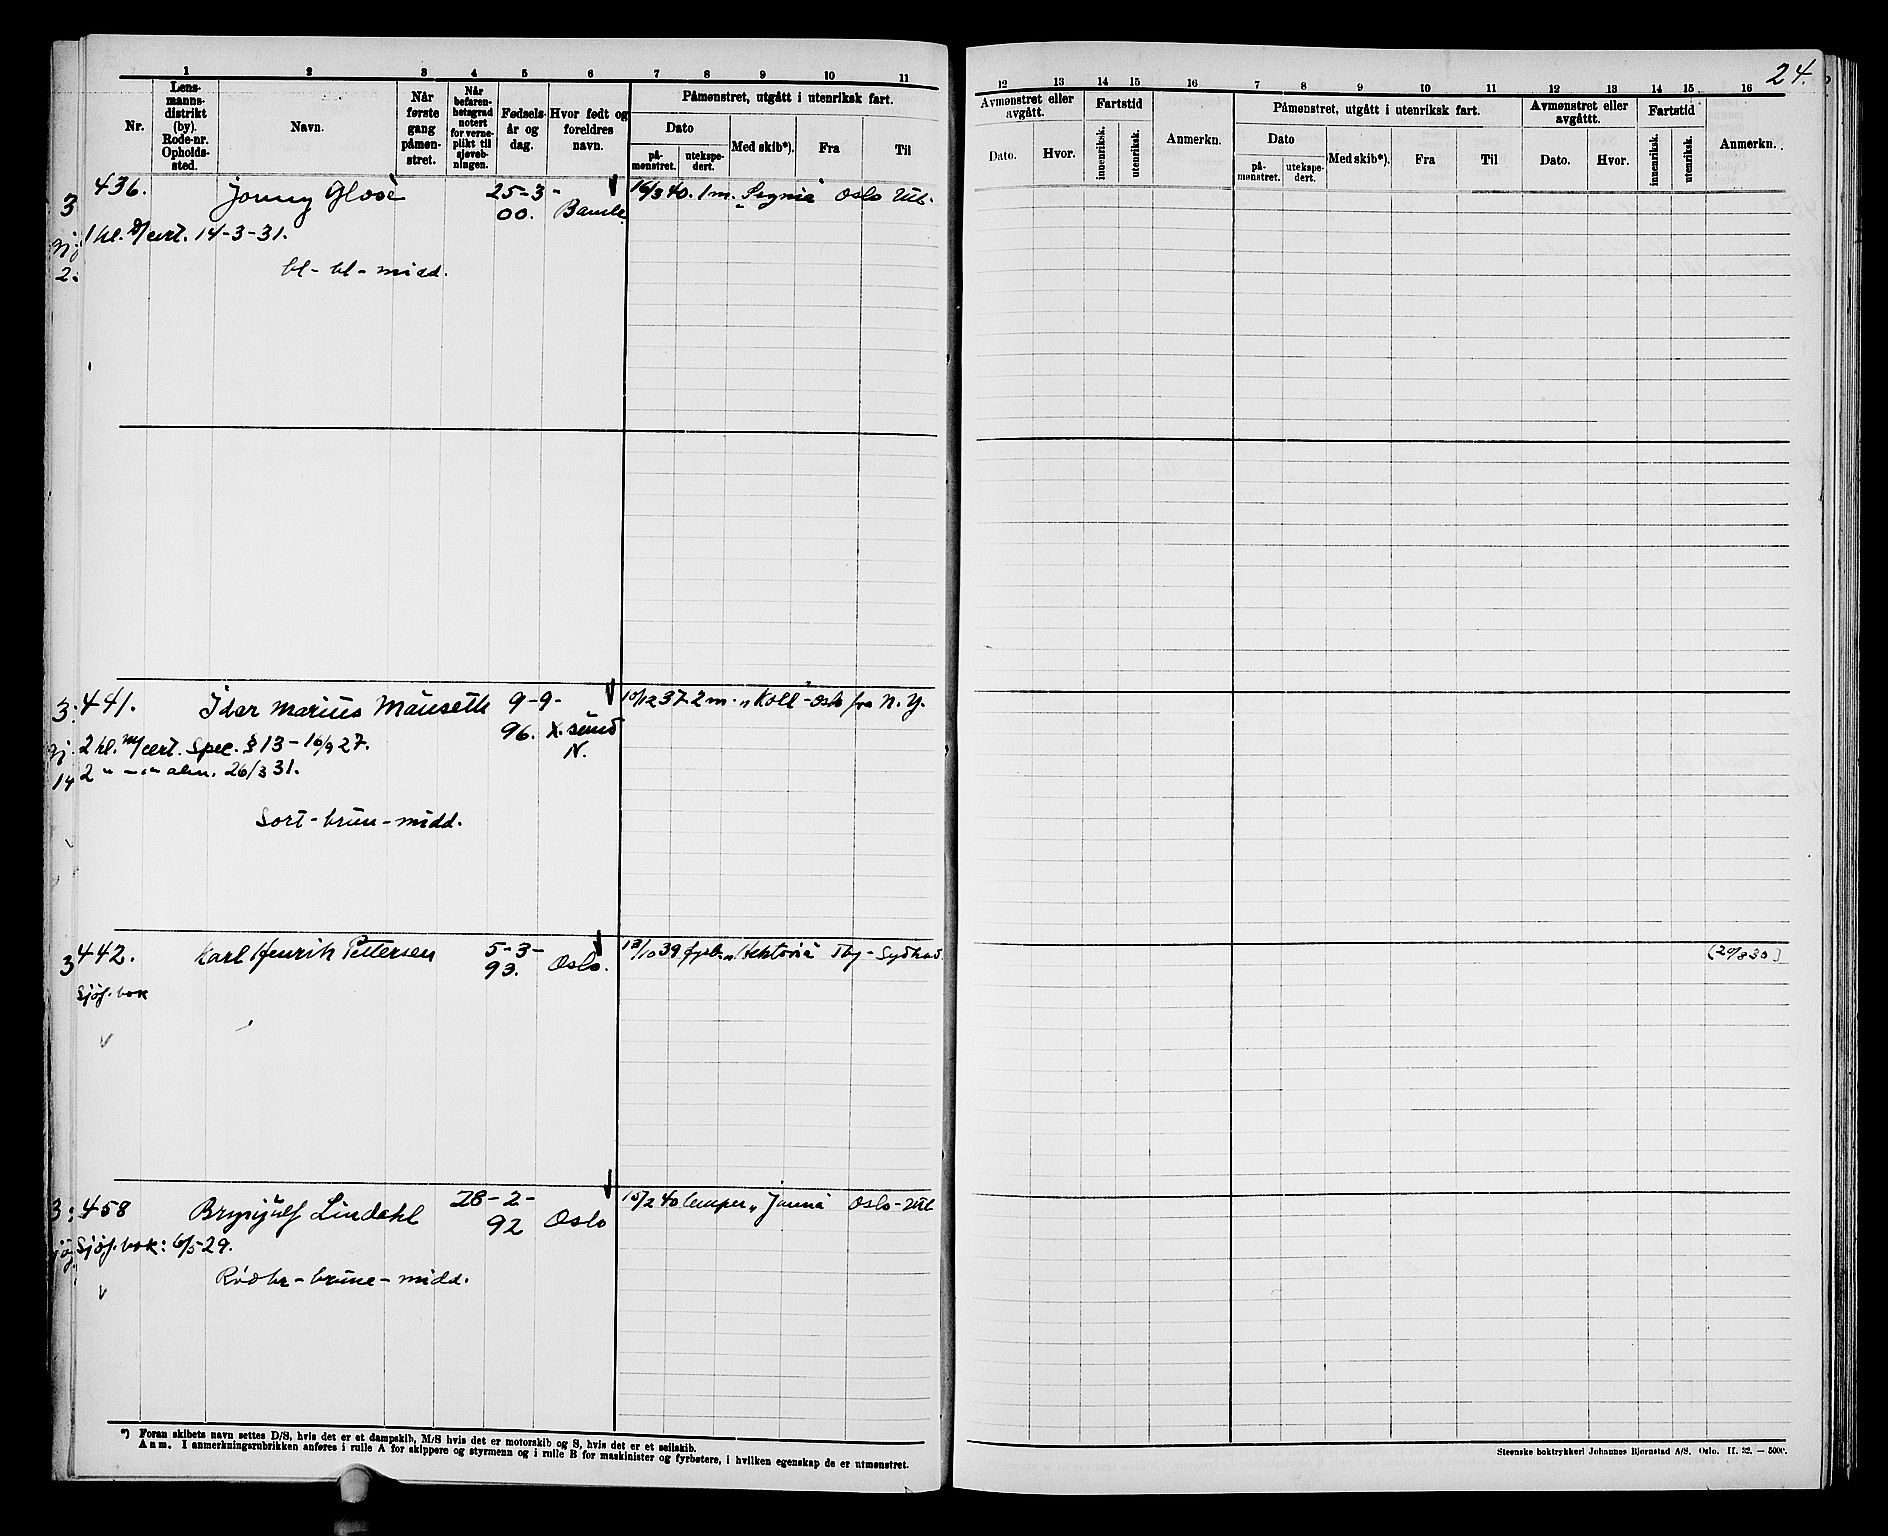 24.
1 2 3 4 5 6 7 8 9 10 11
Nr.
Lens-
manns-
distrikt
(by).
Rode-nr.
Opholds-
sted.
Navn.
Når
første
gang
påmøn-
stret.
Når
befaren-
hetsgrad
notert
for verne-
plikt til
sjøveb-
ningen.
Fødsels-
år og
dag.
Hvor født og
foreldres
navn.
Påmønstret, utgått i utenriksk fart.
Dato
på-
mønstret.
utekspe-
dert.
Med skib*).
Fra
Til
12 13 14 15 16 7 8 9 10 11 12 13 14 15 16
Avmønstret eller
avgått.
Dato.
Hvor.
Fartstid
innenriksk.
utenriksk.
Anmerkn.
Påmønstret, utgått i utenriksk fart.
Dato
på-
mønstret.
utekspe-
dert.
Med skib*).
Fra
Til
Avmønstret eller
avgåttt.
Dato.
Hvor.
Fartstid
innenriksk.
utenriksk.
Anmerkn.
3 436. Jonny Glose 25-3- 16/3 40. 1 m. "Segnia" Oslo Utl.
00. Bamle
1 kl. cert. 14-3-31.
2.
bl- bl- midd.
3. 441. Idar Marius Mauseth 9-9- 10/12 37 2 m. "Koll" - Oslo fra N.Y.
96. X.sund
N.
2 kl. m/cert. Spec. § 13 - 16/9 27.
14 2 " - " alm. 26/3 31.
Sort - brun - midd.
3 442. Karl Henrik Pettersen 5-3- 13/10 39 fyrb. "Hektoria" Tbg - Sydhav. (29/8 30)
93. Oslo.
Sjøf. bok
3. 458 Brynjulf Lindahl 28-2- 15/2 40 lemper "Janna" Oslo - Utl
92 Oslo
Sjøf. bok: 6/5-29.
Rødbr - brune - midd.
*) Foran skibets navn settes D/S, hvis det er et dampskib, M/S hvis det er motorskib og S, hvis det er et seilskib.
Anm. I anmerkningsrubrikken anføres i rulle A for skippere og styrmenn og i rulle B for maskinister og fyrbøtere, i hvilken egenskap de er utmønstret.
Steenske boktrykkeri Johannes Bjørnstad A/S. Oslo. II. 32. — 5000.